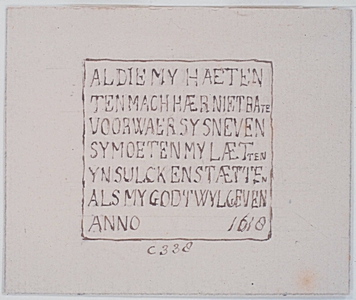 ALDIE MY HAETEN
TEN MACH HÆR NIET BATE
VOORWAER SY SNEVEN
SY MOETEN MY LÆTTEN
YN SULCKEN STÆTTEN
ALS MY GODT WYL GEVEN
ANNO 1618
C 338